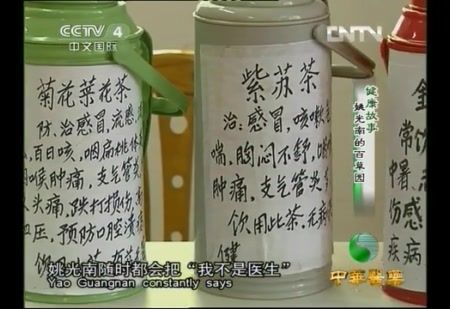 CCTV 4
中文国际
CNTV
健康故事
姚光南的百草园
菊花菜花茶
防、治感冒,流感
百日咳,咽扁桃体
喉肿痛,支气管炎
头痛,跌打损伤,
压,预防口腔溃
紫苏茶
治:感冒,咳嗽
喘,胸闷不舒,
肿痛,支气管炎
饮用此茶,无病
健
常饮
中暑
伤感
疾病
姚光南随时都会把“我不是医生”
Yao Guangnan constantly says
中华医药